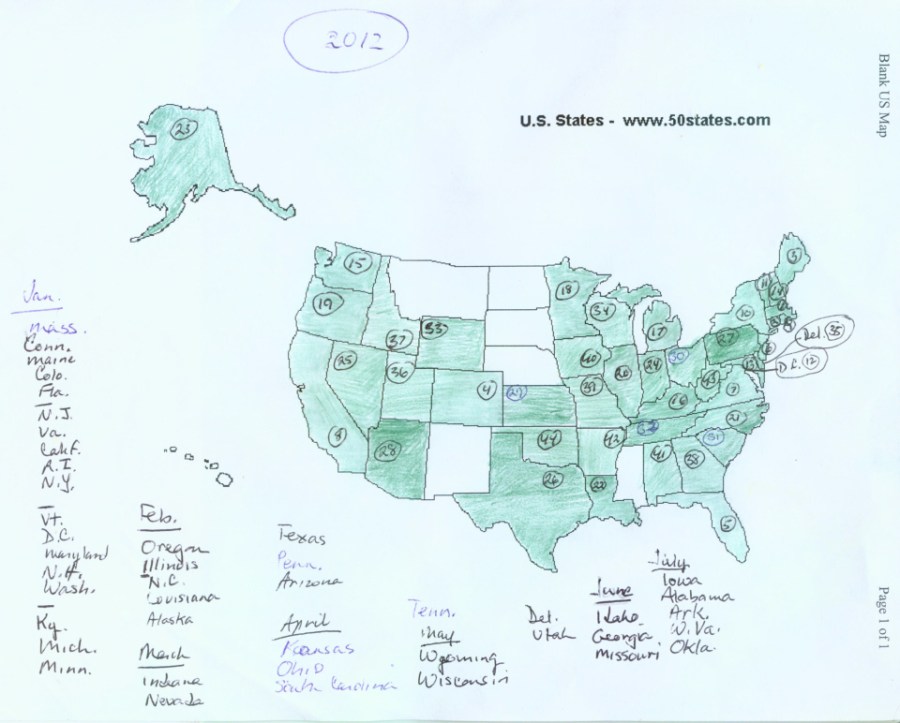 2012
U.S. States - www.50states.com
Blank US Map
23
3
15
18
11
14
19
34
10
37
33
17
27
Del. 35
25
36
40
30
D.C. 12
4
29
39
20
24
43
7
16
8
28
44
42
32
21
31
26
22
41
38
5
Jan.
Mass.
Conn.
Maine
Colo.
Fla.
N.J.
Va.
Calif.
R.I.
N.Y.
Vt.
D.C.
Maryland
N.H.
Wash.
Ky.
Mich.
Minn.
Feb.
Oregon
Illinois
N.C.
Louisiana
Alaska
March
Indiana
Nevada
Texas
Penn.
Arizona
April
Kansas
Ohio
South Carolina
Tenn.
May
Wyoming
Wisconsin
Del.
Utah
June
Idaho
Georgia
Missouri
July
Iowa
Alabama
Ark.
W.Va.
Okla.
Page 1 of 1